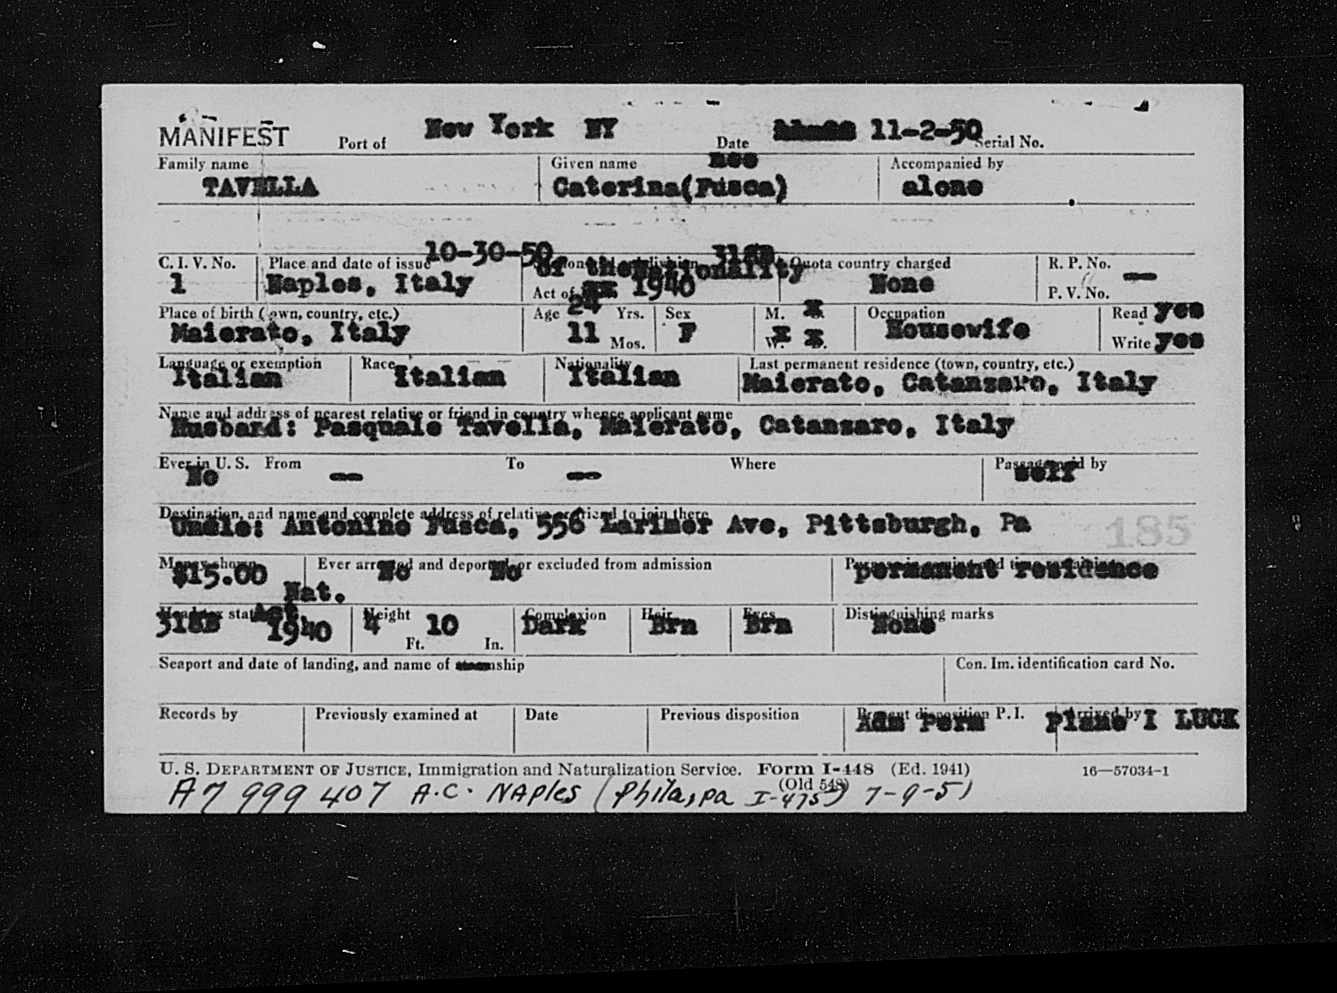 MANIFEST Port of New York NY Date 11-2-50 Serial No.
Family name Given name nee Accompanied by
TAVELLA Caterina(Fusca) alone
10-30-50 318B
C. I. V. No. Place and date of issue Quota country charged R. P. No. —
1 Naples, Italy of the Nationality None
Act of 1940 P. V. No.
Place of birth (town, country, etc.) Age 24 Yrs. Sex M. X Occupation Read yes
Maierato, Italy 11 Mos. F W. X X Housewife Write yes
Language or exemption Race Nationality Last permanent residence (town, country, etc.)
Italian Italian Italian Maierato, Catanzaro, Italy
Name and address of nearest relative or friend in country whence applicant came
Husband: Pasquale Tavella, Maierato, Catanzaro, Italy
Ever in U. S. From To Where Passage paid by
No — — self
Destination, and name and complete address of relative or friend to join there
Uncle: Antonino Fusca, 556 Larimer Ave, Pittsburgh, Pa 185
Money shown Ever arrested and deported, or excluded from admission
$15.00 No No permanent residence
Nat.
Head tax status Act Height Complexion Hair Eyes Distinguishing marks
318B 1940 4 Ft. 10 In. Dark Brn Brn None
Seaport and date of landing, and name of steamship Con. Im. identification card No.
Records by Previously examined at Date Previous disposition Present disposition P. I. Arrived by
Adm Perm Plane I LUCK
U. S. DEPARTMENT OF JUSTICE, Immigration and Naturalization Service. Form I-448 (Ed. 1941) 16—57034-1
(Old 548)
A7 999 407 A.C. NAples (Phila, pa I-475) 7-9-51